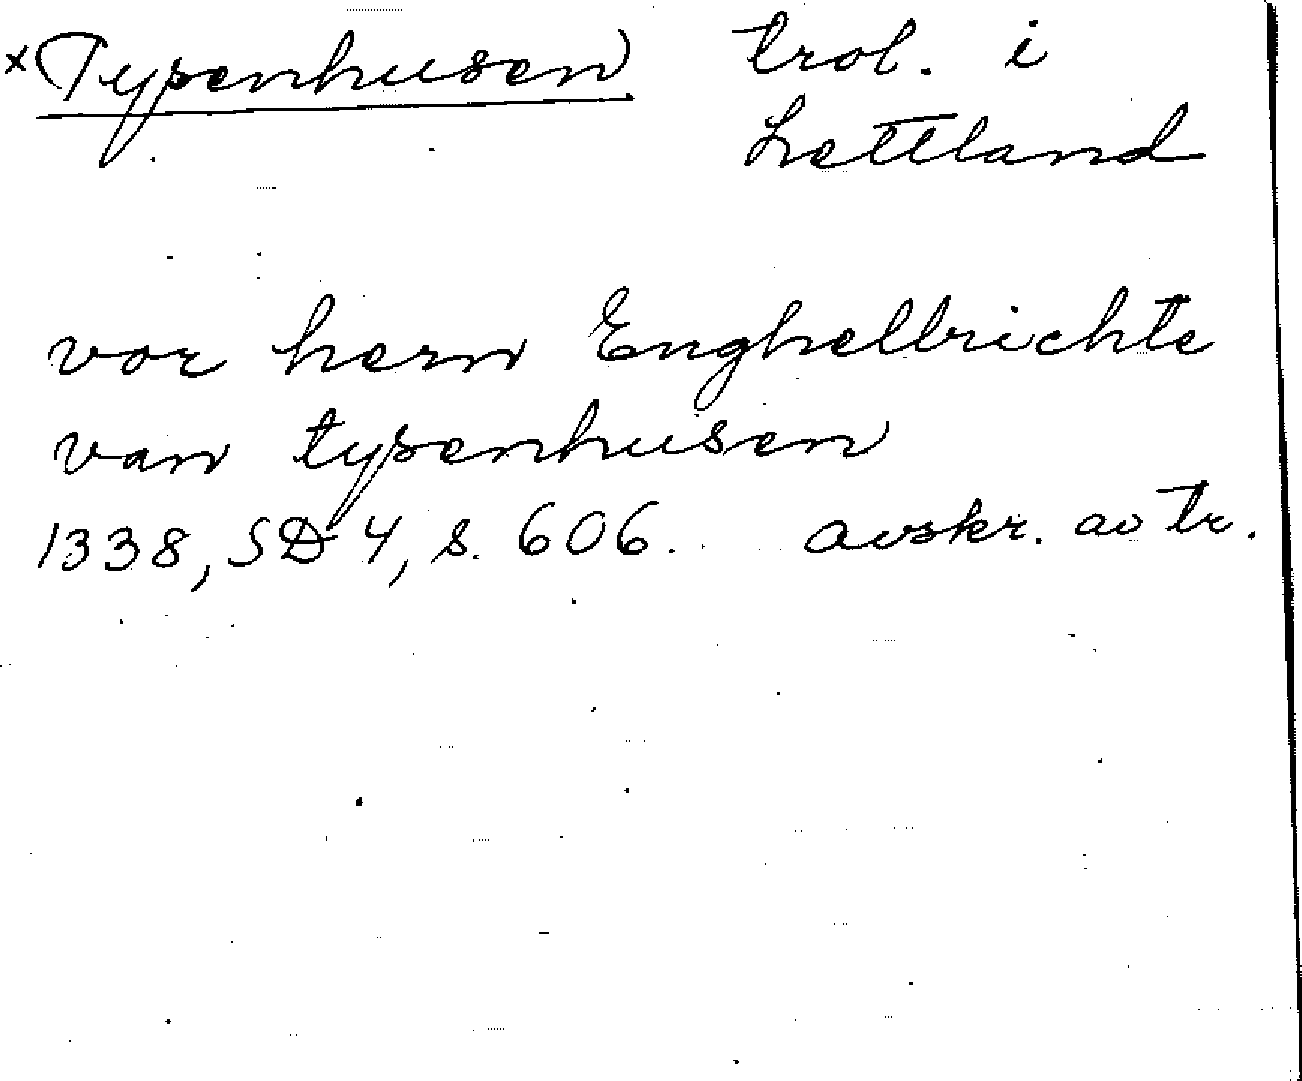 ×Typenhusen trol. i
Lettland
vor hern Enghelbrichte
van typenhusen
1338, SD 4, s. 606. avskr. av tr.